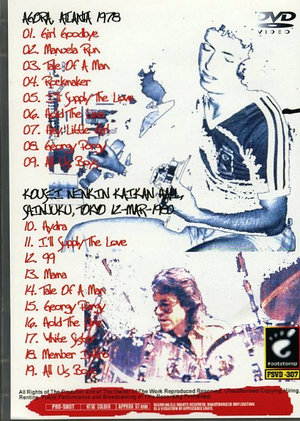 AGORA, ATLANTA 1978
01. Girl Goodbye
02. Manuela Run
03. Tale Of A Man
04. Rockmaker
05. I'll Supply The Love
06. Hold The Line
07. Hey, Little Girl
08. Georgy Porgy
09. All Us Boys
DVD
VIDEO
KOUSEI NENKIN KAIKAN HALL,
SHINJUKU, TOKYO 12-MAR-1980
10. Hydra
11. I'll Supply The Love
12. 99
13. Mama
14. Tale Of A Man
15. Georgy Porgy
16. Hold The Line
17. White Sister
18. Member
19. All Us Boys
footstomp
FSVD-307
All Rights of The Producer and of The Owner of The Work Reproduced Reserved. Unauthorised Copying, Hiring,
Renting, Public Performance and Broadcasting of
PRO-SHOT NTSC COLOUR APPROX 97 min